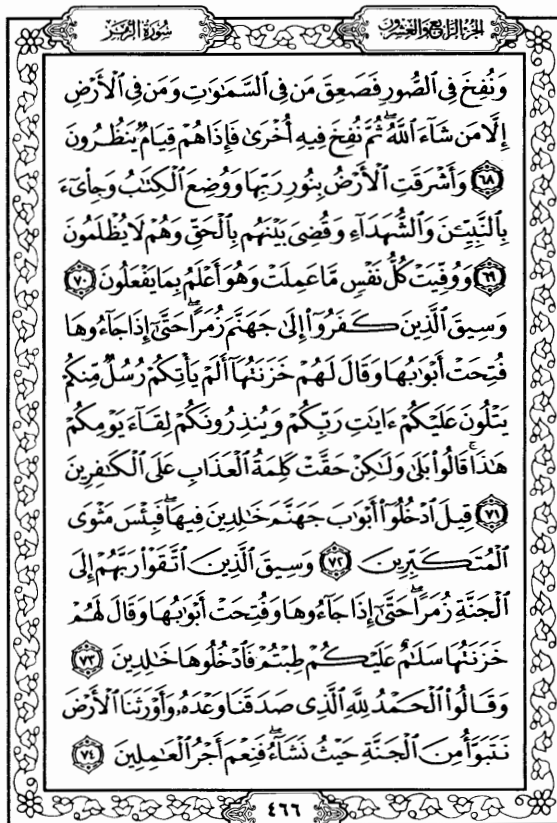 سُورَةُ الزُّمَرِ
الجُزْءُ الرَّابِعُ وَالعِشْرُونَ
وَنُفِخَ فِى ٱلصُّورِ فَصَعِقَ مَن فِى ٱلسَّمَٰوَٰتِ وَمَن فِى ٱلْأَرْضِ
إِلَّا مَن شَآءَ ٱللَّهُ ۖ ثُمَّ نُفِخَ فِيهِ أُخْرَىٰ فَإِذَا هُمْ قِيَامٌ يَنظُرُونَ
٦٨ وَأَشْرَقَتِ ٱلْأَرْضُ بِنُورِ رَبِّهَا وَوُضِعَ ٱلْكِتَٰبُ وَجِا۟ىٓءَ
بِٱلنَّبِيِّۦنَ وَٱلشُّهَدَآءِ وَقُضِىَ بَيْنَهُم بِٱلْحَقِّ وَهُمْ لَا يُظْلَمُونَ
٦٩ وَوُفِّيَتْ كُلُّ نَفْسٍ مَّا عَمِلَتْ وَهُوَ أَعْلَمُ بِمَا يَفْعَلُونَ ٧٠
وَسِيقَ ٱلَّذِينَ كَفَرُوٓا۟ إِلَىٰ جَهَنَّمَ زُمَرًا ۖ حَتَّىٰٓ إِذَا جَآءُوهَا
فُتِحَتْ أَبْوَٰبُهَا وَقَالَ لَهُمْ خَزَنَتُهَآ أَلَمْ يَأْتِكُمْ رُسُلٌ مِّنكُمْ
يَتْلُونَ عَلَيْكُمْ ءَايَٰتِ رَبِّكُمْ وَيُنذِرُونَكُمْ لِقَآءَ يَوْمِكُمْ
هَٰذَا ۚ قَالُوا۟ بَلَىٰ وَلَٰكِنْ حَقَّتْ كَلِمَةُ ٱلْعَذَابِ عَلَى ٱلْكَٰفِرِينَ
٧١ قِيلَ ٱدْخُلُوٓا۟ أَبْوَٰبَ جَهَنَّمَ خَٰلِدِينَ فِيهَا ۖ فَبِئْسَ مَثْوَى
ٱلْمُتَكَبِّرِينَ ٧٢ وَسِيقَ ٱلَّذِينَ ٱتَّقَوْا۟ رَبَّهُمْ إِلَى
ٱلْجَنَّةِ زُمَرًا ۖ حَتَّىٰٓ إِذَا جَآءُوهَا وَفُتِحَتْ أَبْوَٰبُهَا وَقَالَ لَهُمْ
خَزَنَتُهَا سَلَٰمٌ عَلَيْكُمْ طِبْتُمْ فَٱدْخُلُوهَا خَٰلِدِينَ ٧٣
وَقَالُوا۟ ٱلْحَمْدُ لِلَّهِ ٱلَّذِى صَدَقَنَا وَعْدَهُۥ وَأَوْرَثَنَا ٱلْأَرْضَ
نَتَبَوَّأُ مِنَ ٱلْجَنَّةِ حَيْثُ نَشَآءُ ۖ فَنِعْمَ أَجْرُ ٱلْعَٰمِلِينَ ٧٤
٤٦٦